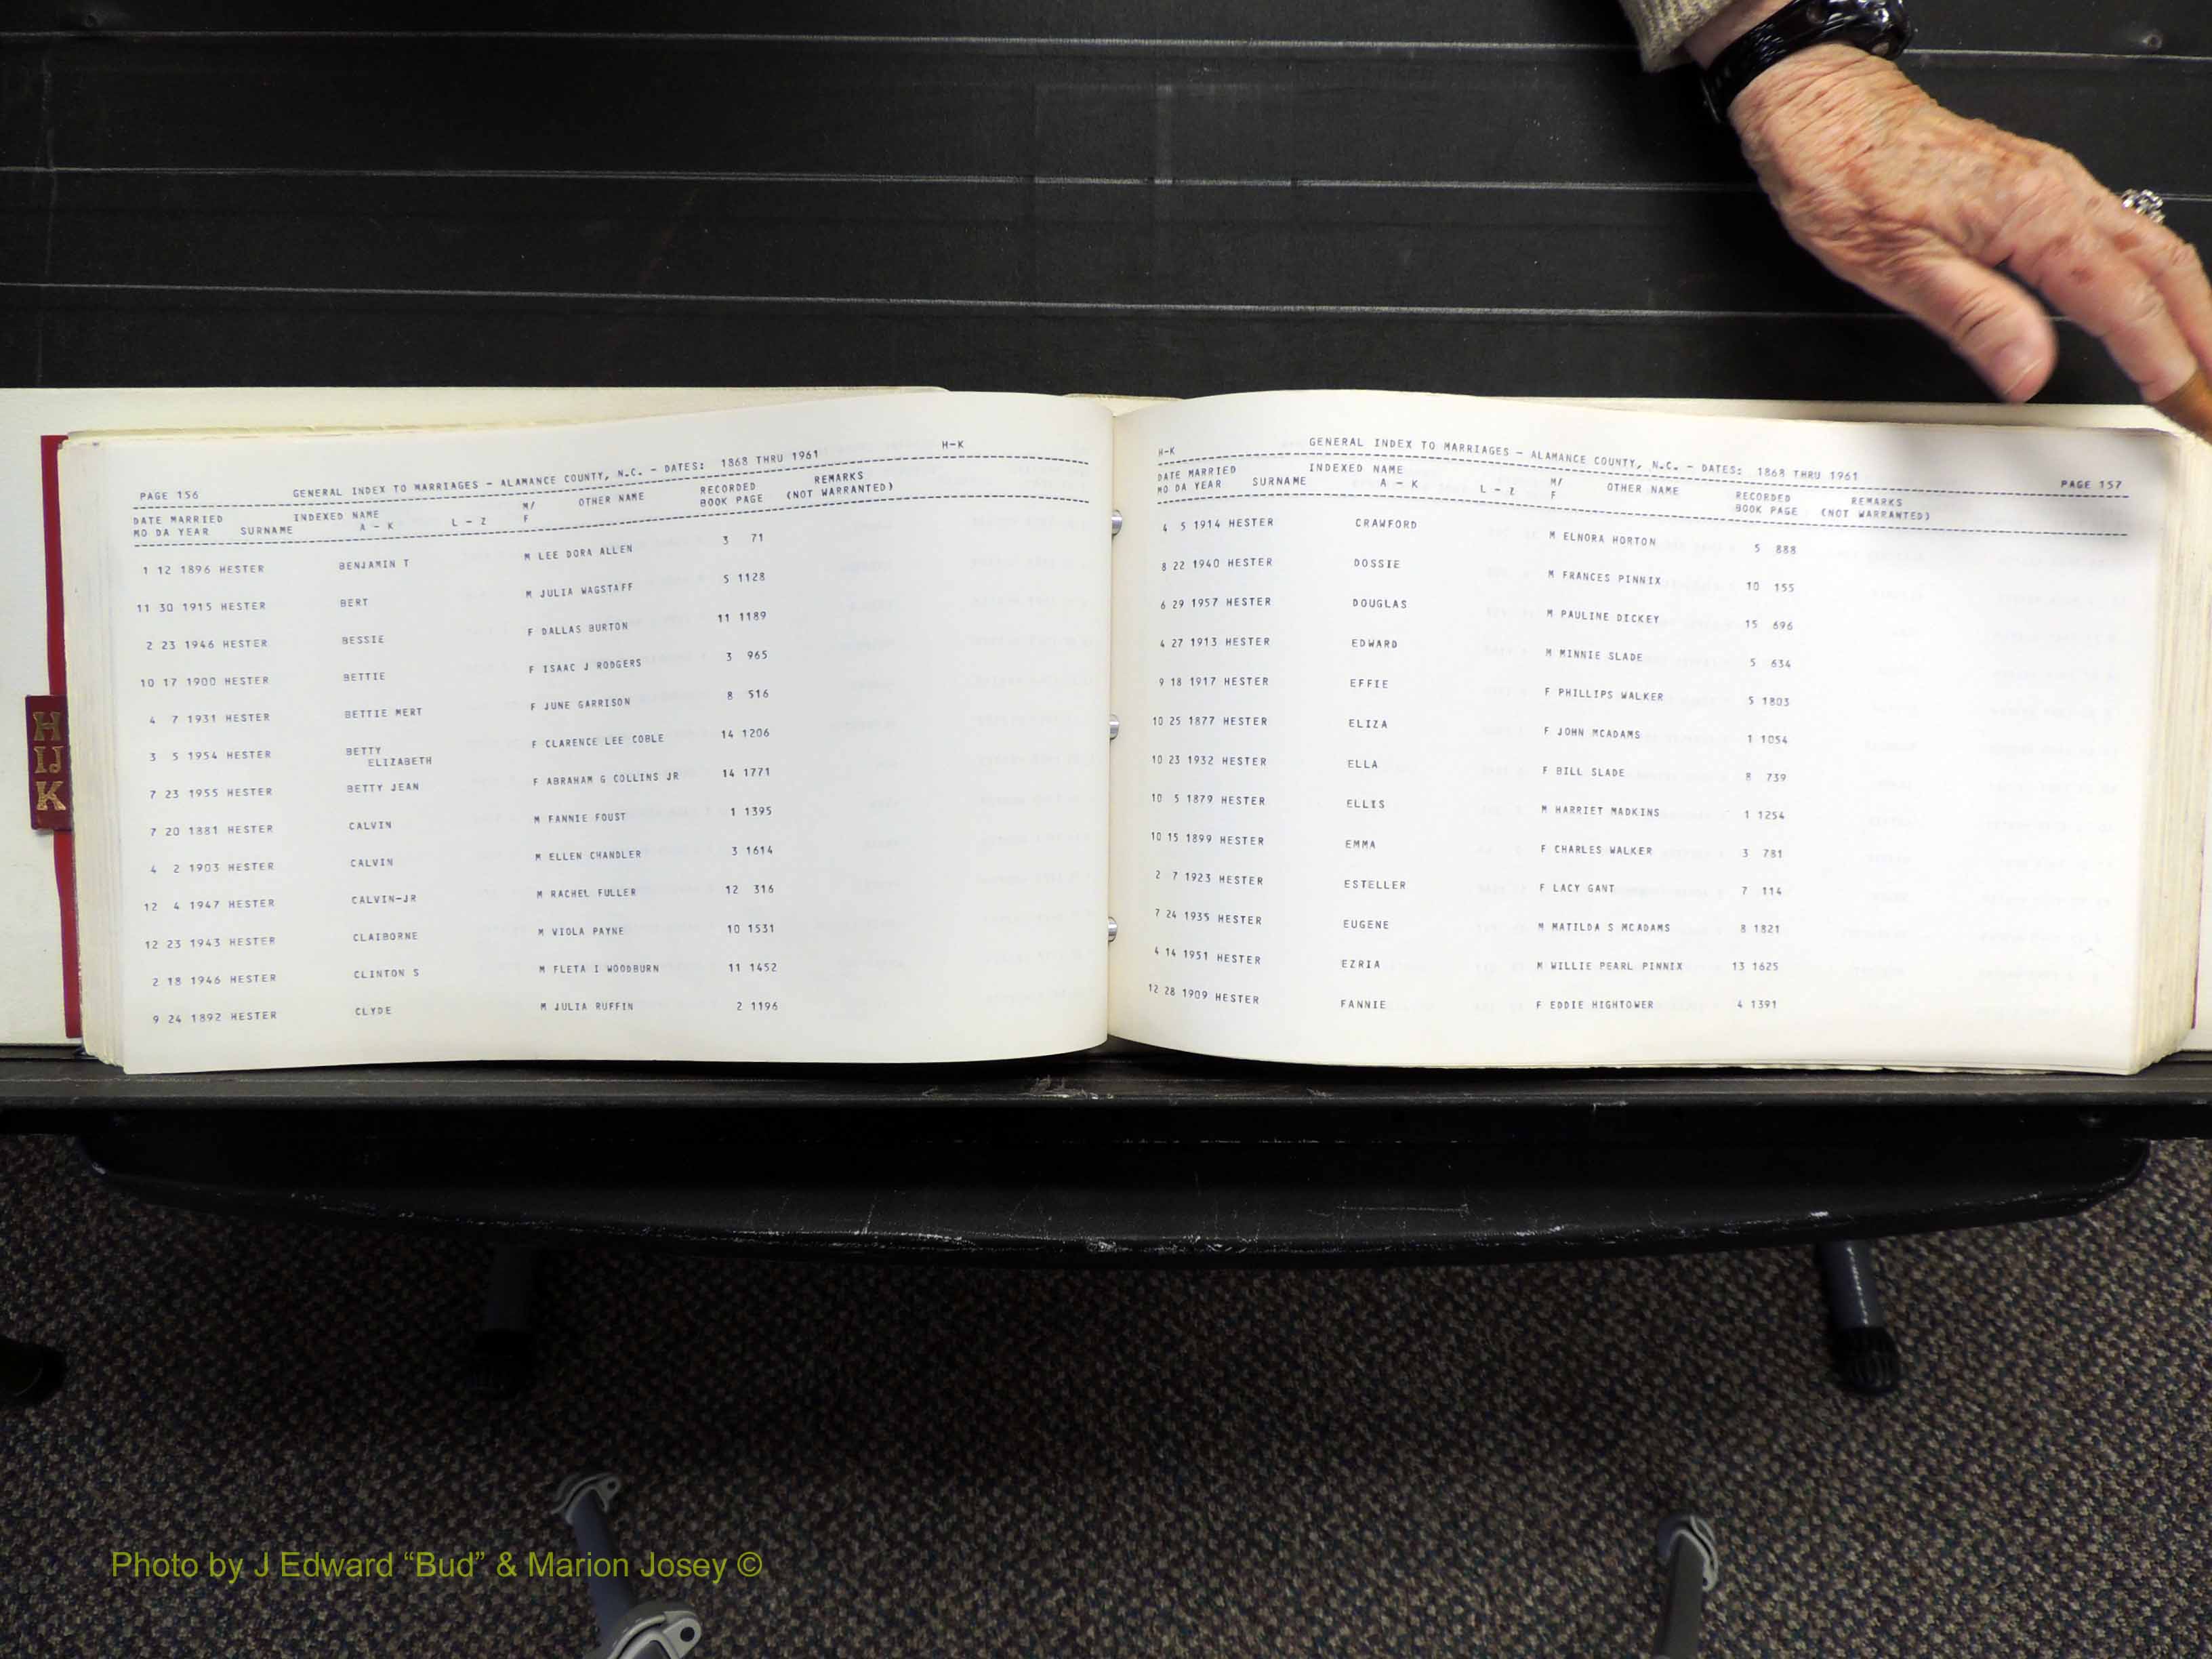 H
IJ
K
H-K
PAGE 156 GENERAL INDEX TO MARRIAGES - ALAMANCE COUNTY, N.C. - DATES: 1868 THRU 1961
DATE MARRIED INDEXED NAME M/ OTHER NAME RECORDED REMARKS
MO DA YEAR SURNAME A - K L - Z F BOOK PAGE (NOT WARRANTED)
1 12 1896 HESTER BENJAMIN T M LEE DORA ALLEN 3 71
11 30 1915 HESTER BERT M JULIA WAGSTAFF 5 1128
2 23 1946 HESTER BESSIE F DALLAS BURTON 11 1189
10 17 1900 HESTER BETTIE F ISAAC J RODGERS 3 965
4 7 1931 HESTER BETTIE MERT F JUNE GARRISON 8 516
3 5 1954 HESTER BETTY F CLARENCE LEE COBLE 14 1206
ELIZABETH
7 23 1955 HESTER BETTY JEAN F ABRAHAM G COLLINS JR 14 1771
7 20 1881 HESTER CALVIN M FANNIE FOUST 1 1395
4 2 1903 HESTER CALVIN M ELLEN CHANDLER 3 1614
12 4 1947 HESTER CALVIN-JR M RACHEL FULLER 12 316
12 23 1943 HESTER CLAIBORNE M VIOLA PAYNE 10 1531
2 18 1946 HESTER CLINTON S M FLETA I WOODBURN 11 1452
9 24 1892 HESTER CLYDE M JULIA RUFFIN 2 1196
H-K GENERAL INDEX TO MARRIAGES - ALAMANCE COUNTY, N.C. - DATES: 1868 THRU 1961 PAGE 157
DATE MARRIED INDEXED NAME M/ OTHER NAME RECORDED REMARKS
MO DA YEAR SURNAME A - K L - Z F BOOK PAGE (NOT WARRANTED)
4 5 1914 HESTER CRAWFORD M ELNORA HORTON 5 888
8 22 1940 HESTER DOSSIE M FRANCES PINNIX 10 155
6 29 1957 HESTER DOUGLAS M PAULINE DICKEY 15 696
4 27 1913 HESTER EDWARD M MINNIE SLADE 5 634
9 18 1917 HESTER EFFIE F PHILLIPS WALKER 5 1803
10 25 1877 HESTER ELIZA F JOHN MCADAMS 1 1054
10 23 1932 HESTER ELLA F BILL SLADE 8 739
10 5 1879 HESTER ELLIS M HARRIET MADKINS 1 1254
10 15 1899 HESTER EMMA F CHARLES WALKER 3 781
2 7 1923 HESTER ESTELLER F LACY GANT 7 114
7 24 1935 HESTER EUGENE M MATILDA S MCADAMS 8 1821
4 14 1951 HESTER EZRIA M WILLIE PEARL PINNIX 13 1625
12 28 1909 HESTER FANNIE F EDDIE HIGHTOWER 4 1391
Photo by J Edward “Bud” & Marion Josey ©